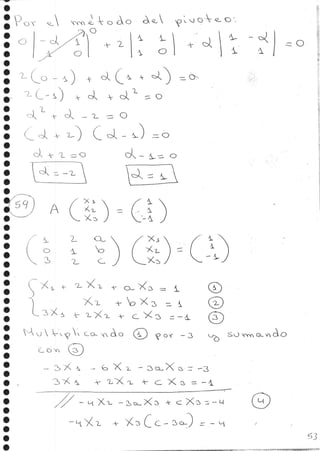 Por el método del pivoteo:
0 | -α 1 / 1 0 | + 2 | 1 1 / 1 0 | + α | 1 -α / 1 1 | = 0
2(0 - 1) + α(1 + α) = 0
2(-1) + α + α² = 0
α² + α - 2 = 0
(α + 2) (α - 1) = 0
α + 2 = 0 α - 1 = 0
α = -2 α = 1
59) A (X1 X2 X3) = (1 1 -1)
(1 2 a / 0 1 b / 3 2 c) (X1 X2 X3) = (1 1 -1)
X1 + 2X2 + aX3 = 1 ①
X2 + bX3 = 1 ②
3X1 + 2X2 + cX3 = -1 ③
Multiplicando ① por -3 y sumando
con ③
-3X1 - 6X2 - 3aX3 = -3
3X1 + 2X2 + cX3 = -1
// -4X2 - 3aX3 + cX3 = -4 ④
-4X2 + X3(c - 3a) = -4
53